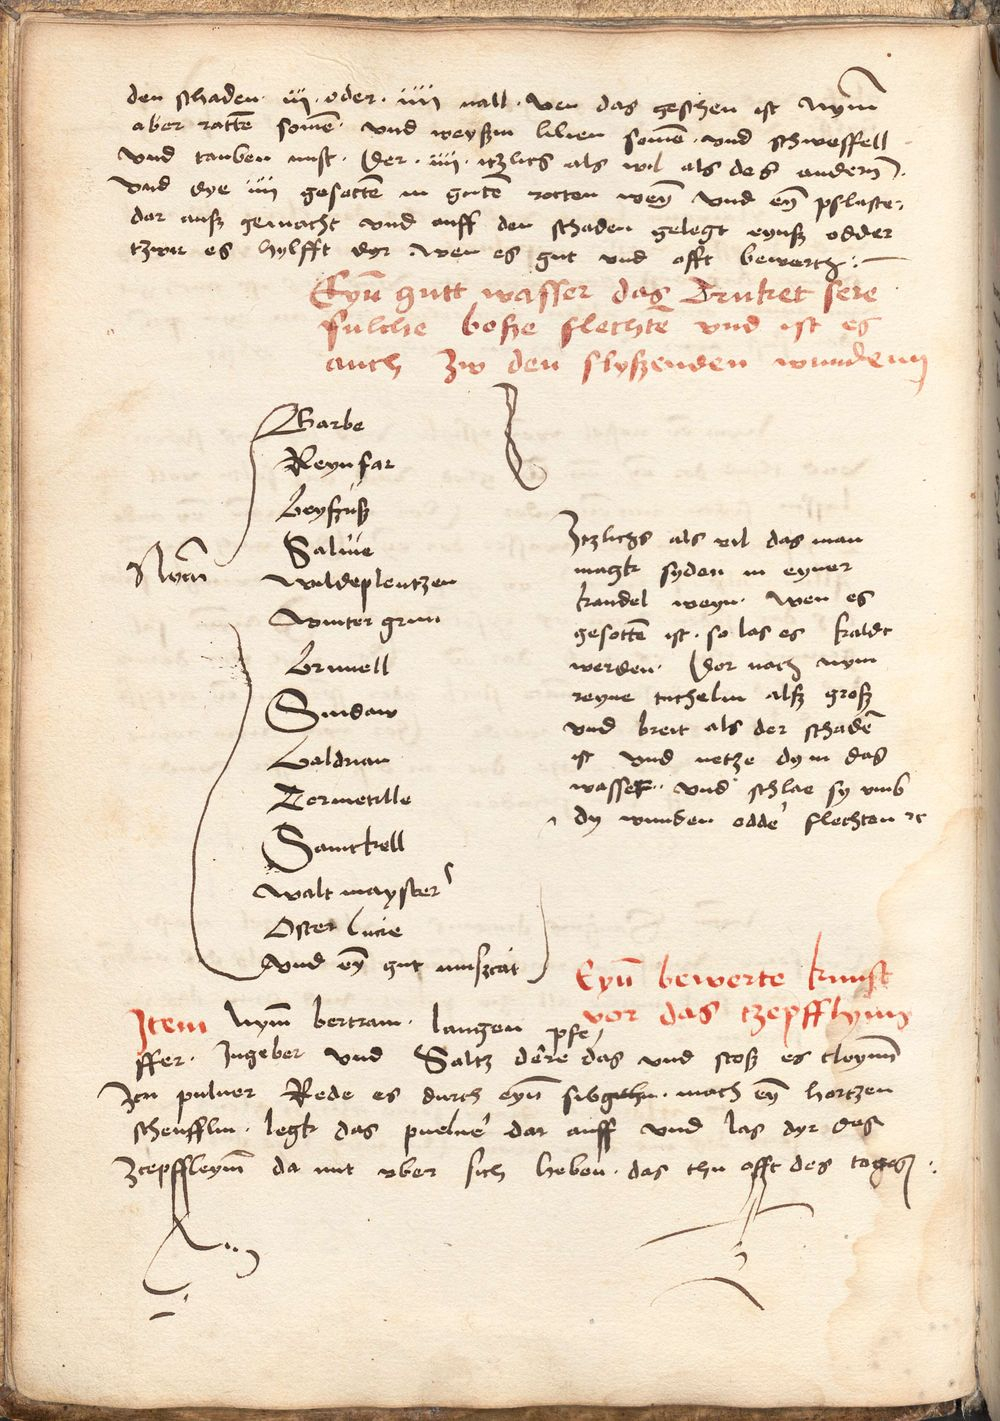 den schaden · iij · oder · iiij mall · Wen das geschen ist Nym̄
aber ratte͂ some͂ · vnd weyssin lilien some͂ · vnd schweffell
vnd tauben mist · Der · iiij · itzlichs als vil als des andern̄ ·
Vnd dye iiij gesotte͂ in gute͂ rotten wey͂ vnd ey͂ pflaster
dar auß gemacht vnd auff den schaden gelegt eynß odder
tzwir es hylfft dyr · Wen es gut vnd offt bewertz :
Eyn̄ gutt wasser das Truket sere
sulche boße flechte͂ vnd ist es
auch zw den flyßenden wunden
Garbe
Reynfar
Beyfuß
Salue
Wildeplentzen
Winter grun
Brunell
Sindaw
Baldrian
Tormetille
Sanickell
Walt mayster
Oster lucie
Vnd ey͂ gut muszcat
Nym̄
Itzlichs als vil das man
magk syden in eyner
kandel weyn · Wen es
gesotte͂ ist · so las es kaldt
werden · Dor noch nym
reyne tuchelin alß groß
vnd breit als der schade͂
ist vnd netze dy in das
wasser · vnd schlae sy vmb
dy wunden odde' flechten ꝛc
Eyn̄ bewerte kunst
vor das tzepfflyn
Item Nym̄ bertram · langen pfe
ffer · Ingeber vnd Saltz dere das vnd stoß es cleyn̄
Zcu puluer Rede es durch eyn̄ · mach ey͂ hortzen
scheufflin · legk das puelue' dar auff vnd las dyr das
Zcepffleyn̄ da mit vber sich heben · das thu offt des tages :